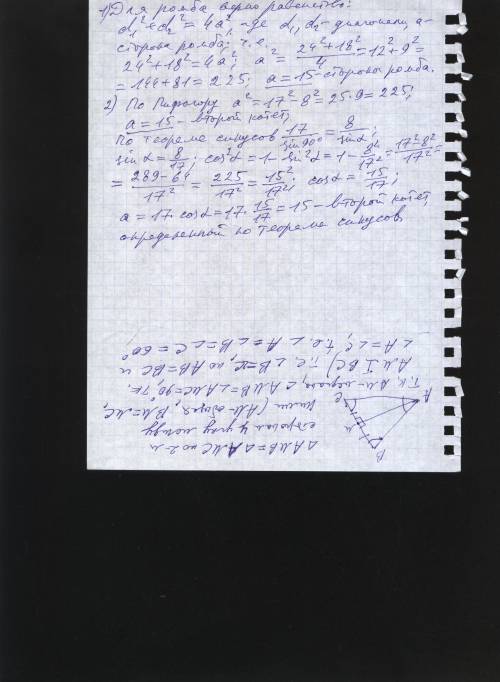 1) Для ромба верно равенство:
d₁² + d₂² = 4a², где d₁, d₂ - диагонали, a -
сторона ромба, т.е.
24² + 18² = 4a²; a² = (24² + 18²)/4 = 12² + 9² =
= 144 + 81 = 225; a = 15 - сторона ромба.
2) По Пифагору a² = 17² - 8² = 25·9 = 225;
a = 15 - второй катет,
По теореме синусов 17/sin 90° = 8/sin α;
sin α = 8/17; cos²α = 1 - sin²α = 1 - 8²/17² = (17² - 8²)/17² =
= (289 - 64)/17² = 225/17² = 15²/17²; cos α = 15/17;
a = 17·cos α = 17·15/17 = 15 - второй катет,
определенный по теореме синусов
△AMB = △AMC по 2-м
сторонам и углу между
ними (AM общая, BM = MC,
∠AMB = ∠AMC = 90°, т.к.
т.к. AM - медиана,
AM ⊥ BC) т.е. ∠B = ∠C, но AB = BC и
∠A = ∠C, т.е. ∠A = ∠B = ∠C = 60°
B
M
C
A